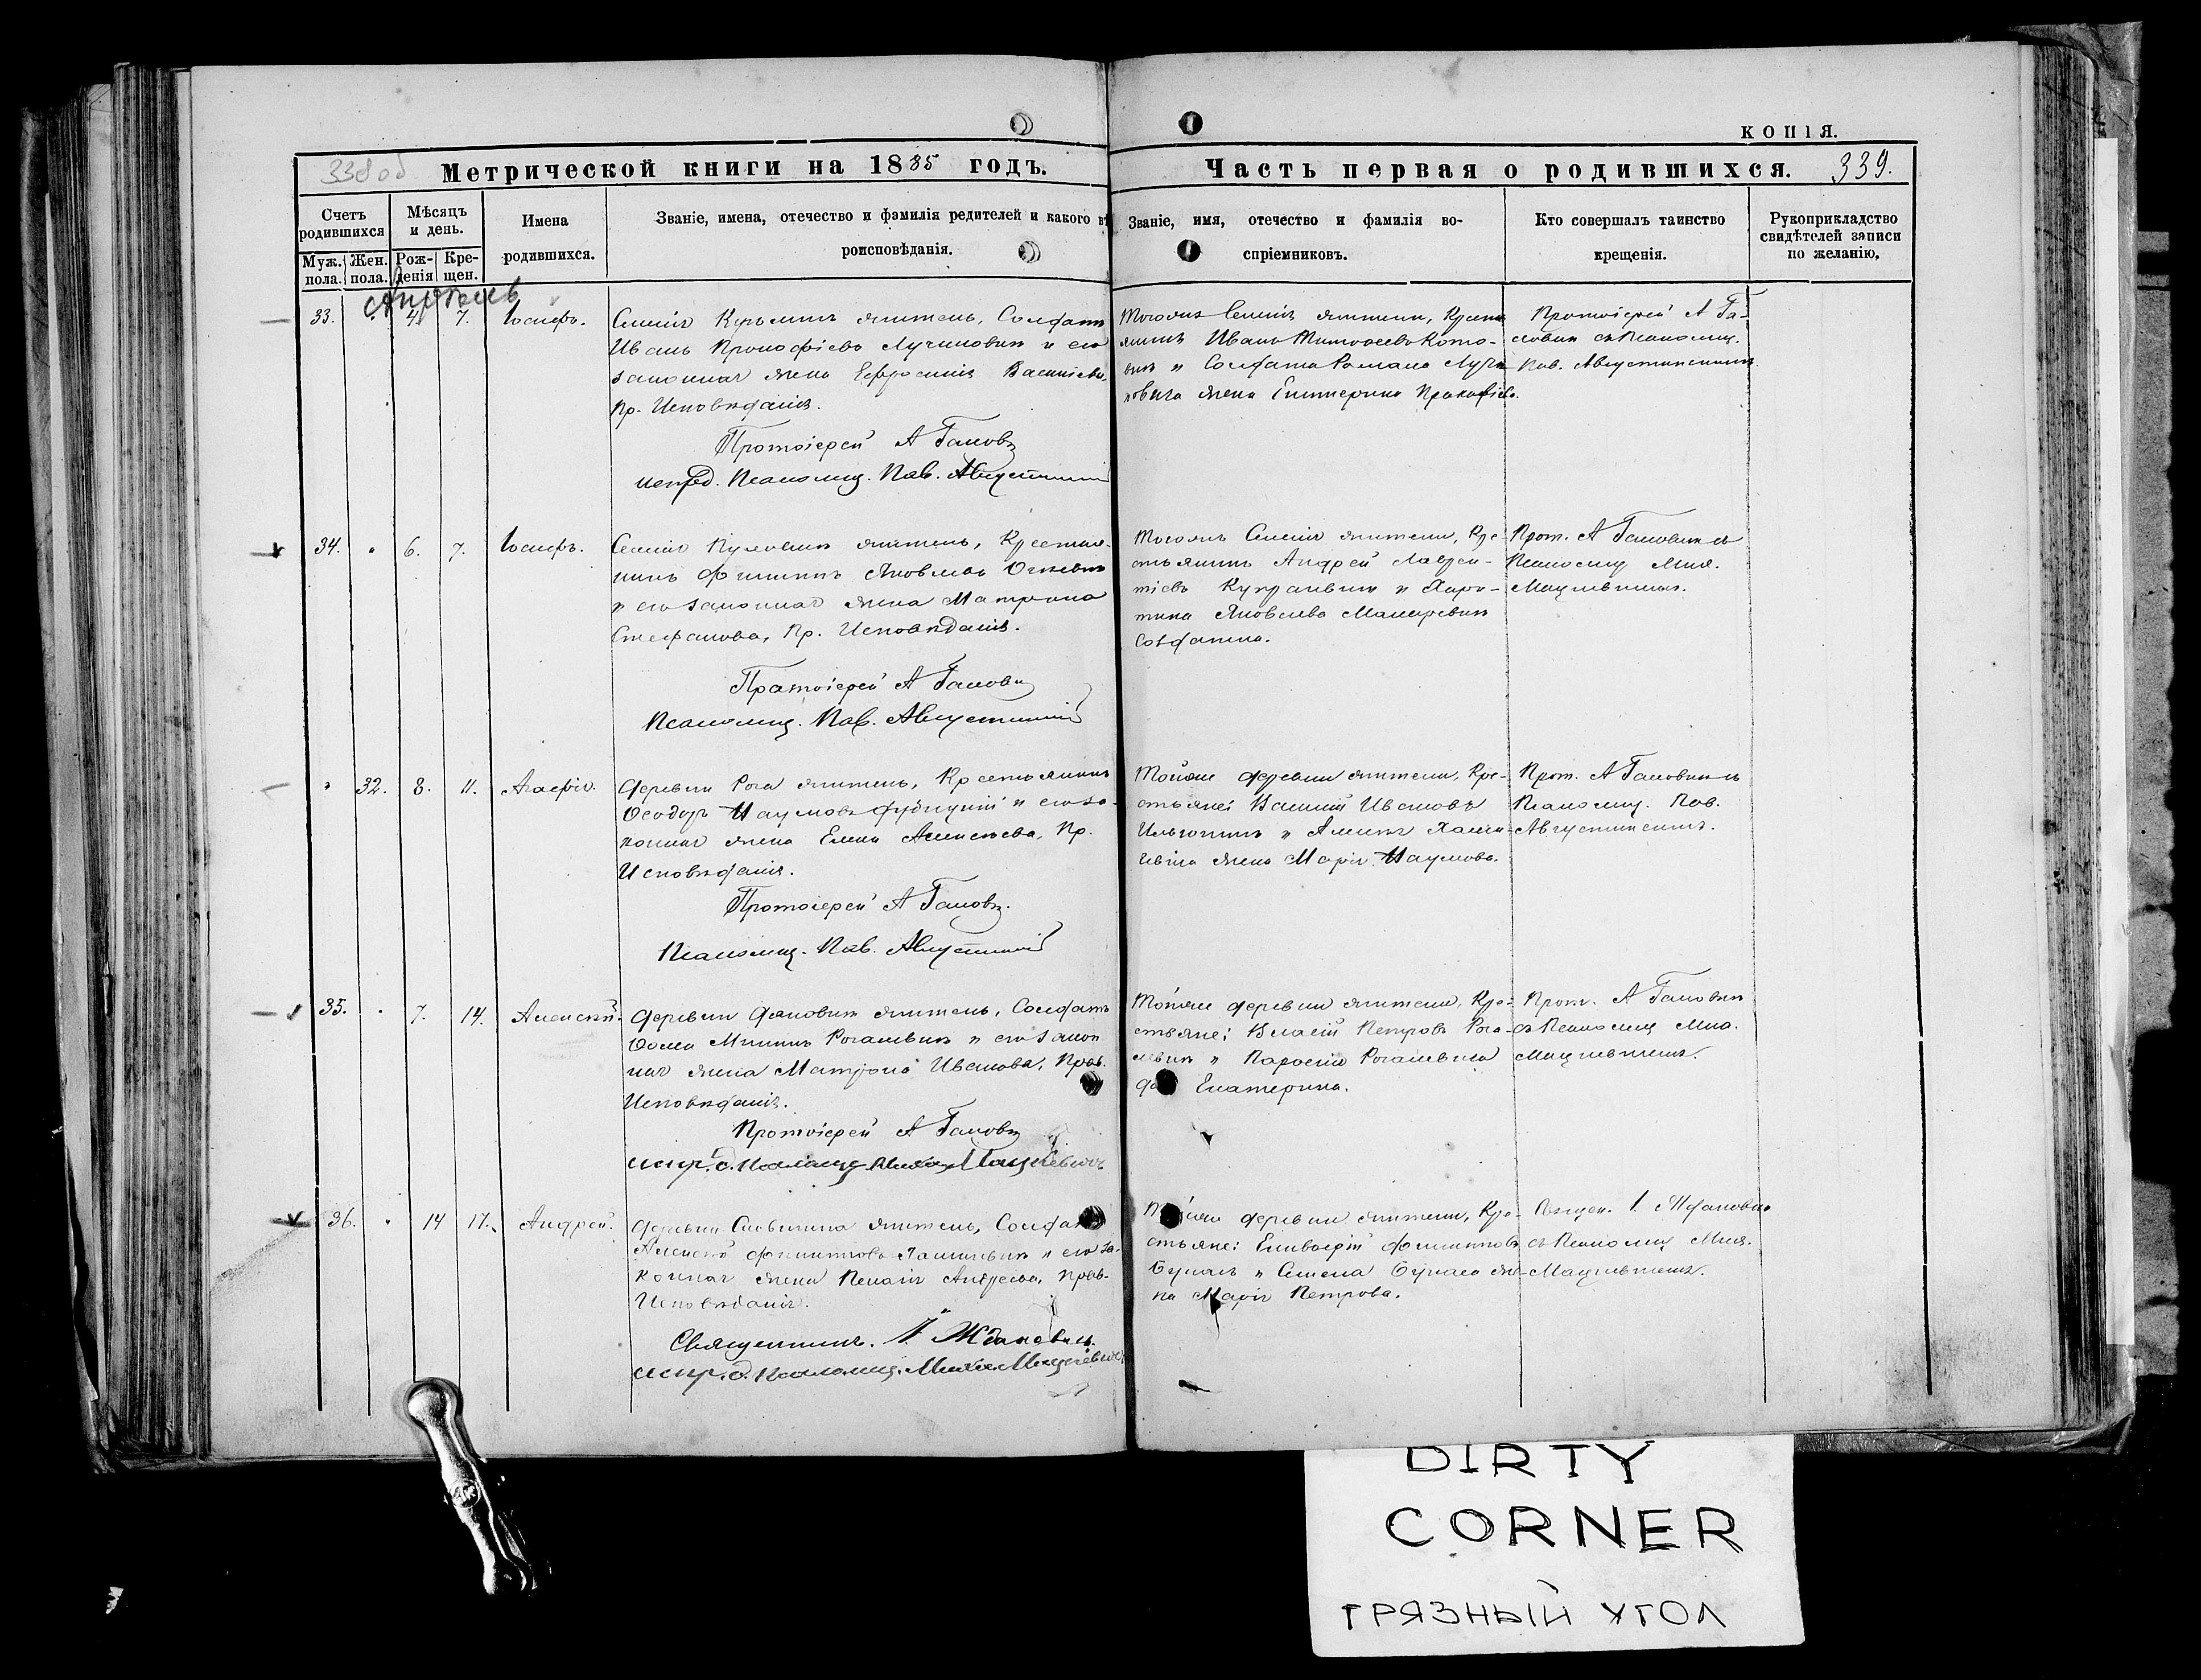 КОПІЯ.
338 об
Метрической книги на 1885 годъ.
Часть первая о родившихся. 339.
Счетъ родившихся
Мѣсяцъ и день.
Имена родившихся.
Званіе, имена, отечество и фамилія родителей и какого вѣ
роисповѣданія.
Муж. пола.
Жен. пола.
Рож- денія
Кре- щен.
Званіе, имя, отечество и фамилія во-
спріемниковъ.
Кто совершалъ таинство
крещенія.
Рукоприкладство
свидѣтелей записи
по желанію.
Апрѣль
33. " 4. 7. Іосифъ.
Селенія Кузьмичъ житель, Солдатъ
Иванъ Прокофіевъ Лучиновичъ и его
законная жена Ефросинія Васильева,
Пр. Исповѣданія.
Протоіерей А Гамовъ
испр.д. Псаломщ. Пав. Августинскій
Тогоже Селенія жители, Крест
янинъ Иванъ Тимоѳеевъ Кото-
вичъ и Солдата Романа Лучи
новича жена Екатерина Прокофіева.
Протоіерей А Га-
мовичъ съ Псаломщ.
Пав. Августинскимъ.
34. " 6. 7. Іосифъ.
Селенія житель, Крестья-
нинъ Филиппъ Яковлевъ
и его законная жена Матрона
Стефанова, Пр. Исповѣданія.
Протоіерей А Гамовъ
Псаломщ. Пав. Августинскій
Тогожъ Селенія жители, Кре-
стьянинъ Андрей Лаврен-
тіевъ и Хари-
тина Яковлева Макаревичъ
Солдатка.
Прот. А Гамовичъ съ
Псаломщ Мих.
Мацкевичемъ.
" 32. 8. 11. Агафія.
Деревни Рога житель, Крестьянинъ
Ѳеодоръ Наумовъ Дубицкій и его за-
конная жена Елена Алексѣева, Пр.
Исповѣданія.
Протоіерей А Гамовъ.
Псаломщ. Пав. Августинскій
Тойже деревни жители, Кре-
стьяне: Василій Ивановъ
жена Марія Наумова.
Прот. А Гамовичъ съ
Псаломщ. Пав.
Августинскимъ.
35. " 7. 14. Алексѣй.
Деревни житель, Солдатъ
Ѳома Рогалевичъ и его закон
ная жена Матрона Иванова, Прав.
Исповѣданія.
Протоіерей А Гамовъ
испр. д. Псаломщ. Миха. Мацкевичъ
Тойже деревни жители, Кре-
стьяне: Власій Петровъ Рога-
левичъ и Рогалевича
Екатерина.
Прот. А Гамовичъ
съ Псаломщ Миха.
Мацкевичемъ.
36. " 14 17. Андрей.
Деревни житель, Солдатъ
Алексѣй Филипповъ и его за-
конная жена Пелагія Андреева, Прав-
Исповѣданія.
Священникъ. І Ждановичъ.
испр. д. Псаломщ. Михаи. Мацкевичъ
Тойже деревни жители, Кре-
стьяне: Филипповъ
и Семена же-
на Марія Петрова.
Священ. І. Ждановичъ
съ Псаломщ Миха.
Мацкевичемъ.
DIRTY
CORNER
ГРЯЗНЫЙ УГОЛ